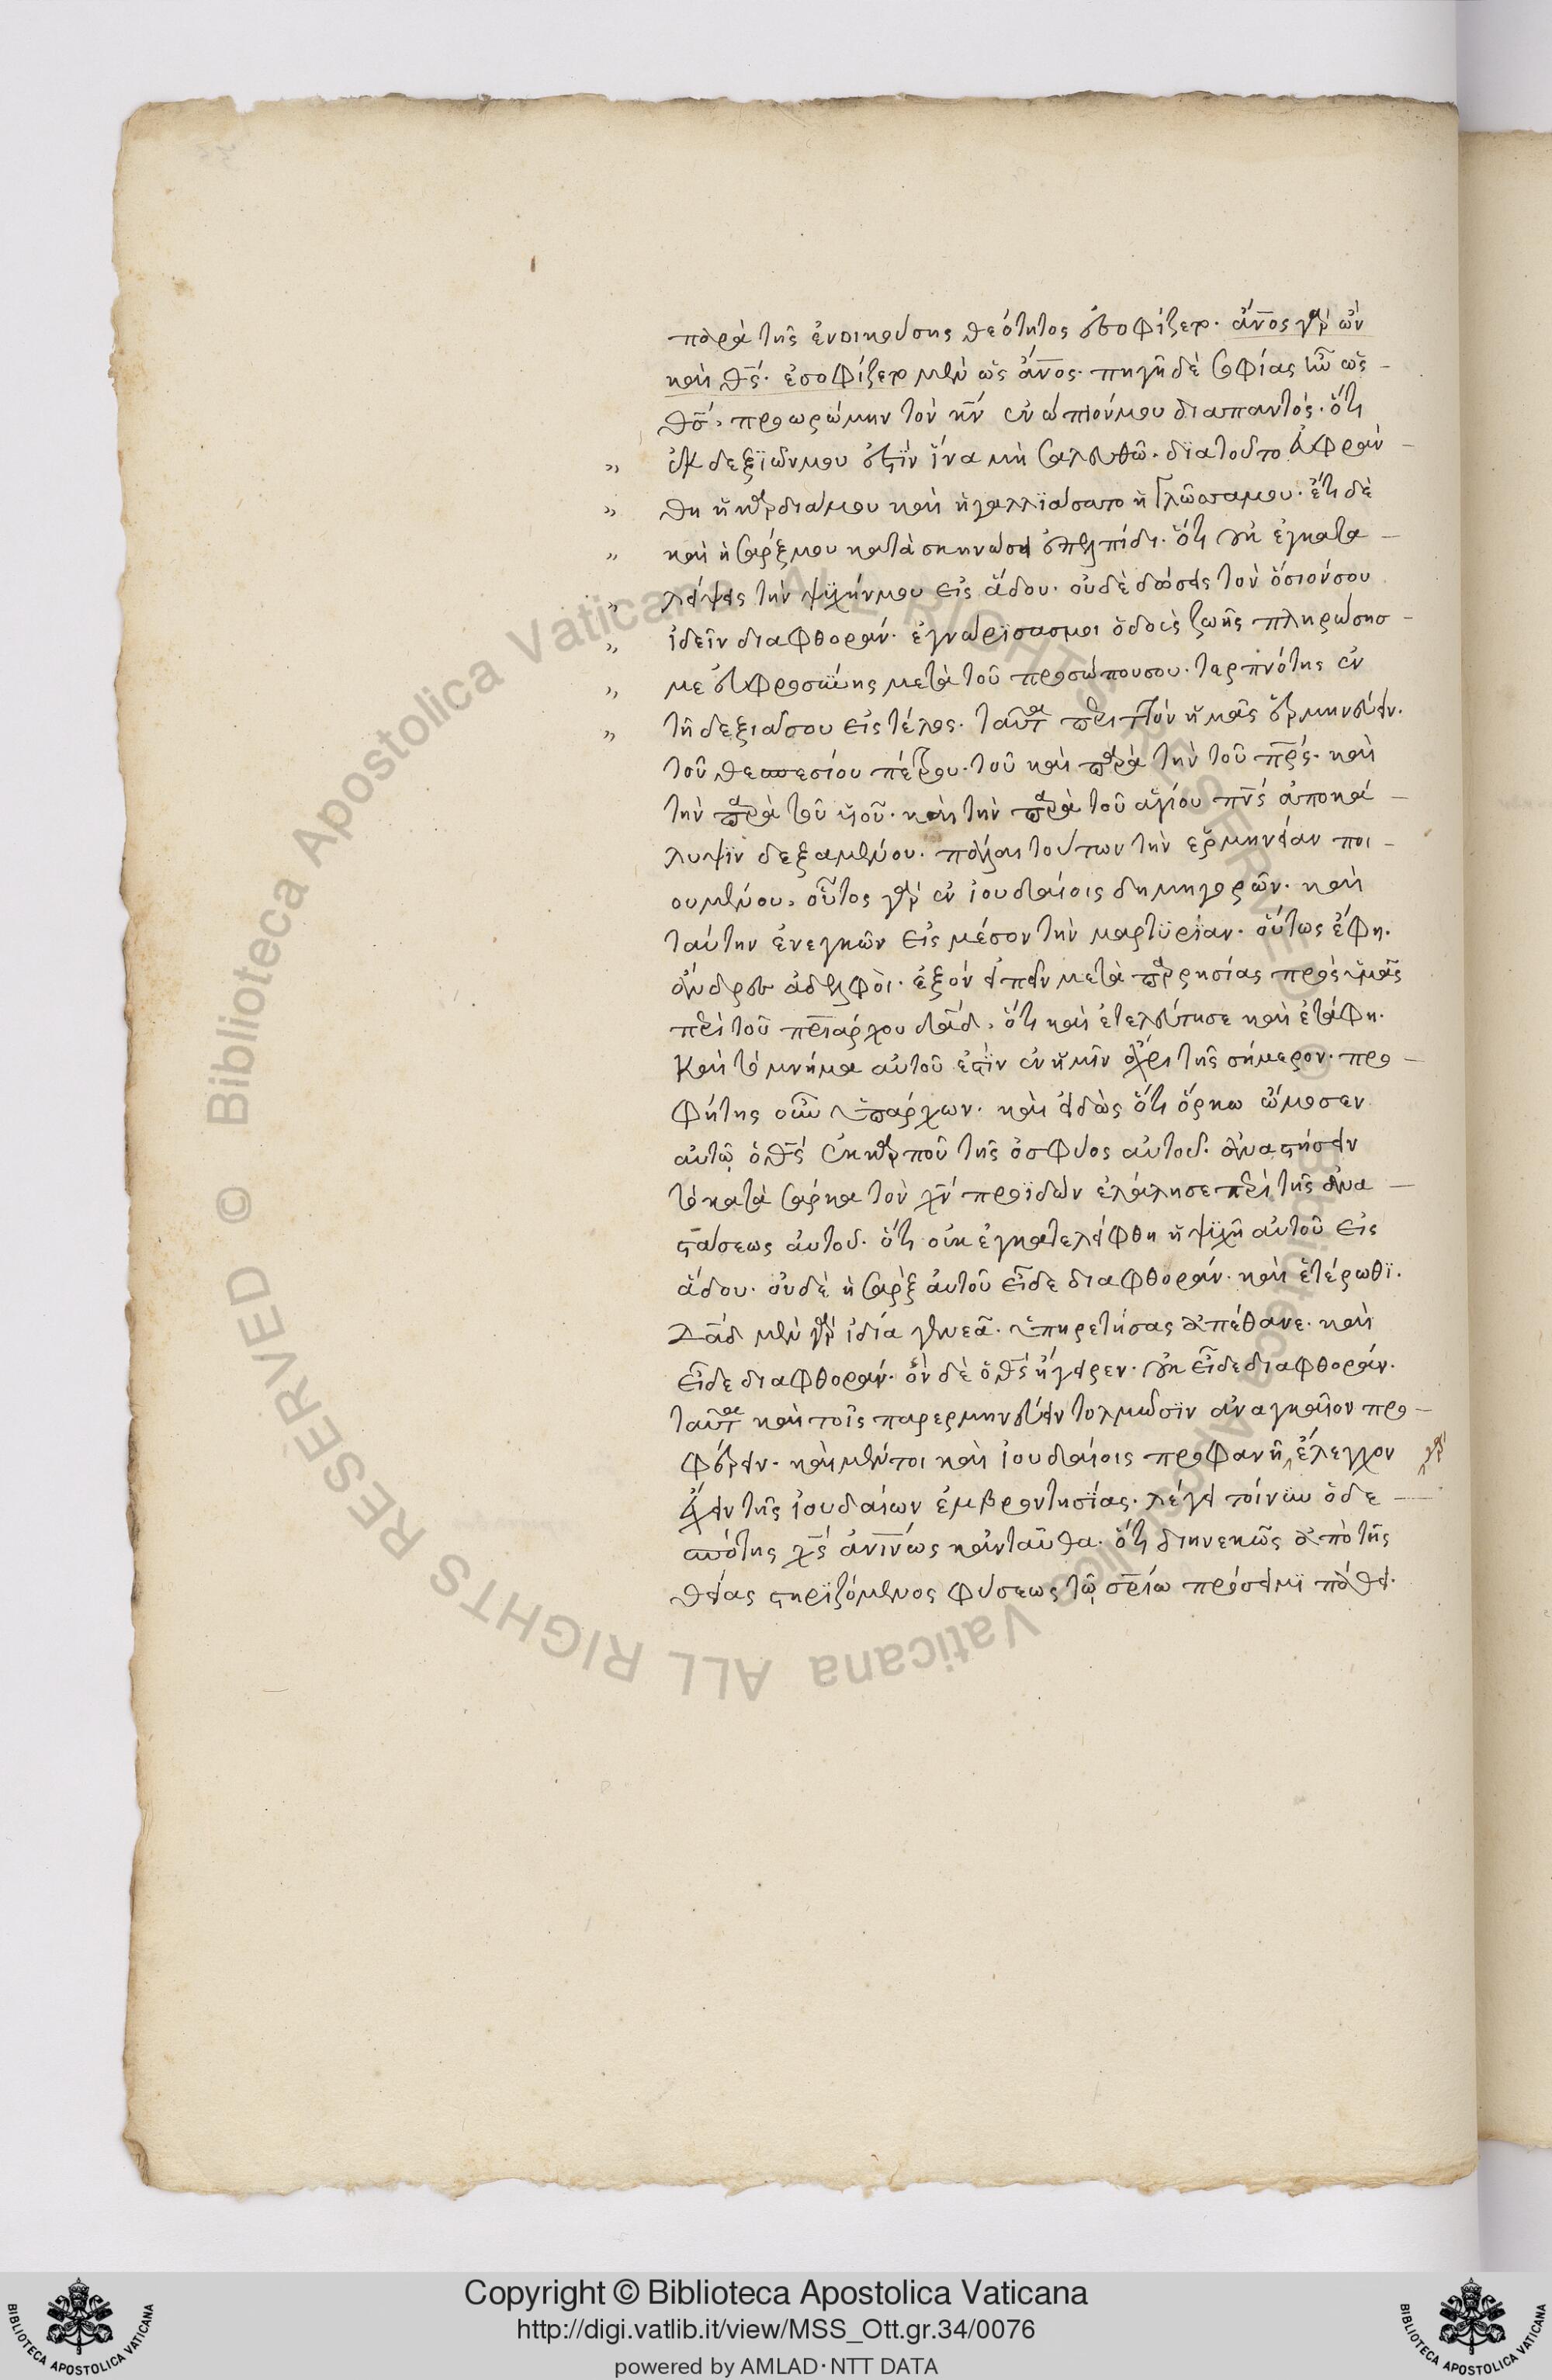 παρὰ τῆς ἐνοικούσης θεότητος ἐσοφίζετο· ἄν̅ο̅ς γὰρ ὢν
καὶ θ̅ς̅· ἐσοφίζετο μὲν ὡς ἄν̅ο̅ς· πηγὴ δὲ σοφίας ἦν ὡς
θ̅ς̅· προωρώμην τὸν κ̅ν̅ ἐνώπιόνμου διαπαντός· ὅτι
„ ἐκ δεξϊῶνμου ἐστϊν ἵνα μὴ σαλευθῶ· δϊατοῦτο ηὐφράν
„ θη ἡ καρδίαμου καὶ ἠγαλλϊάσατο ἡ γλῶσσαμου· ἔτι δὲ
„ καὶ ἡ σάρξμου κατασκηνώσει ἐπελπίδι· ὅτι οὐκ ἐγκατα
„ λείψεις τὴν ψϋχήνμου εἰς ἅδου· οὐδὲ δώσεις τὸν ὅσιόνσου
„ ἰδεῖν διαφθοράν· ἐγνώρϊσασμοι ὁδοὺς ζωῆς πληρώσησ
„ με εὐφροσϋνης μετὰ τοῦ προσώπουσου· τερπνότης ἐν
„ τῆ δεξιᾶσου εἰς τέλος· ταῦτα περιττὸν ἡμᾶς ἑρμηνεύειν·
τοῦ θεσπεσίου πέτρου· τοῦ καὶ παρὰ τὴν τοῦ π̅ρ̅ς· καὶ
τὴν παρὰ τοῦ ϋἱοῦ· καὶ τὴν παρὰ τοῦ ἁγίου π̅ν̅ς ἀποκά
λυψϊν δεξαμένου· πάλαι τούτων τὴν ἑρμηνείαν ποι
ουμένου· οὗτος γὰρ ἐν ἰουδαίοις δημηγορῶν· καὶ
ταύτην ἐνεγκὼν εἰς μέσον τὴν μαρτϋρίαν· οὕτως ἔφη·
ἄνδρες ἀδελφοὶ· ἐξὸν εἰπεῖν μετὰ παρρησίας πρὸς ὑμᾶς
περὶ τοῦ π̅ρ̅ιάρχου δα̅δ̅· ὅτι καὶ ἐτελεύτησε καὶ ἐτάφη·
Καὶ τὸ μνῆμα αὐτοῦ ἐστϊν ἐν ἡμῖν ἄχρι τῆς σήμερον· προ
φήτης οὖν ὑπάρχων· καὶ εἰδὼς ὅτι ὅρκω ὤμοσεν
αὐτῶ ὁ θ̅ς̅ ἐκ καρποῦ τῆς ὀσφύος αὐτοῦ· ἀναστήσειν
τὸ κατὰ σάρκα τὸν χ̅ν̅ προϊδὼν ἐλάλησε περὶ τῆς ἀνα
στάσεως αὐτοῦ· ὅτι οὐκ ἐγκατελείφθη ἡ ψϋχὴ αὐτοῦ εἰς
ἅδου· οὐδὲ ἡ σὰρξ αὐτοῦ εἶδε διαφθοράν· καὶ ἑτέρωθϊ·
Δα̅δ̅ μὲν γὰρ ἰδία γενεᾶ· ὑπηρετήσας ἀπέθανε· καὶ
εἶδε διαφθοράν· ὃν δὲ ὁ θ̅ς̅ ἤγειρεν· οὐκ εἶδε διαφθοράν·
ταῦτα καὶ τοῖς παρερμηνεύειν τολμῶσϊν ἀναγκαῖον προ
φέρειν· καὶ μέντοι καὶ ἰουδαίοις προφανῆ ἔλεγχον γὰρ
ἔχειν τῆς ἰουδαίων ἐμβροντησϊας· λέγει τοίνϋν ὁ δε
σπότης χ̅ς̅ ἀν̅ι̅νως κἀνταῦθα· ὅτι διηνεκῶς ἀπὸ τῆς
θείας στηρϊζόμενος φύσεως τῶ σ̅ρ̅ίω πρόσειμϊ πάθει·